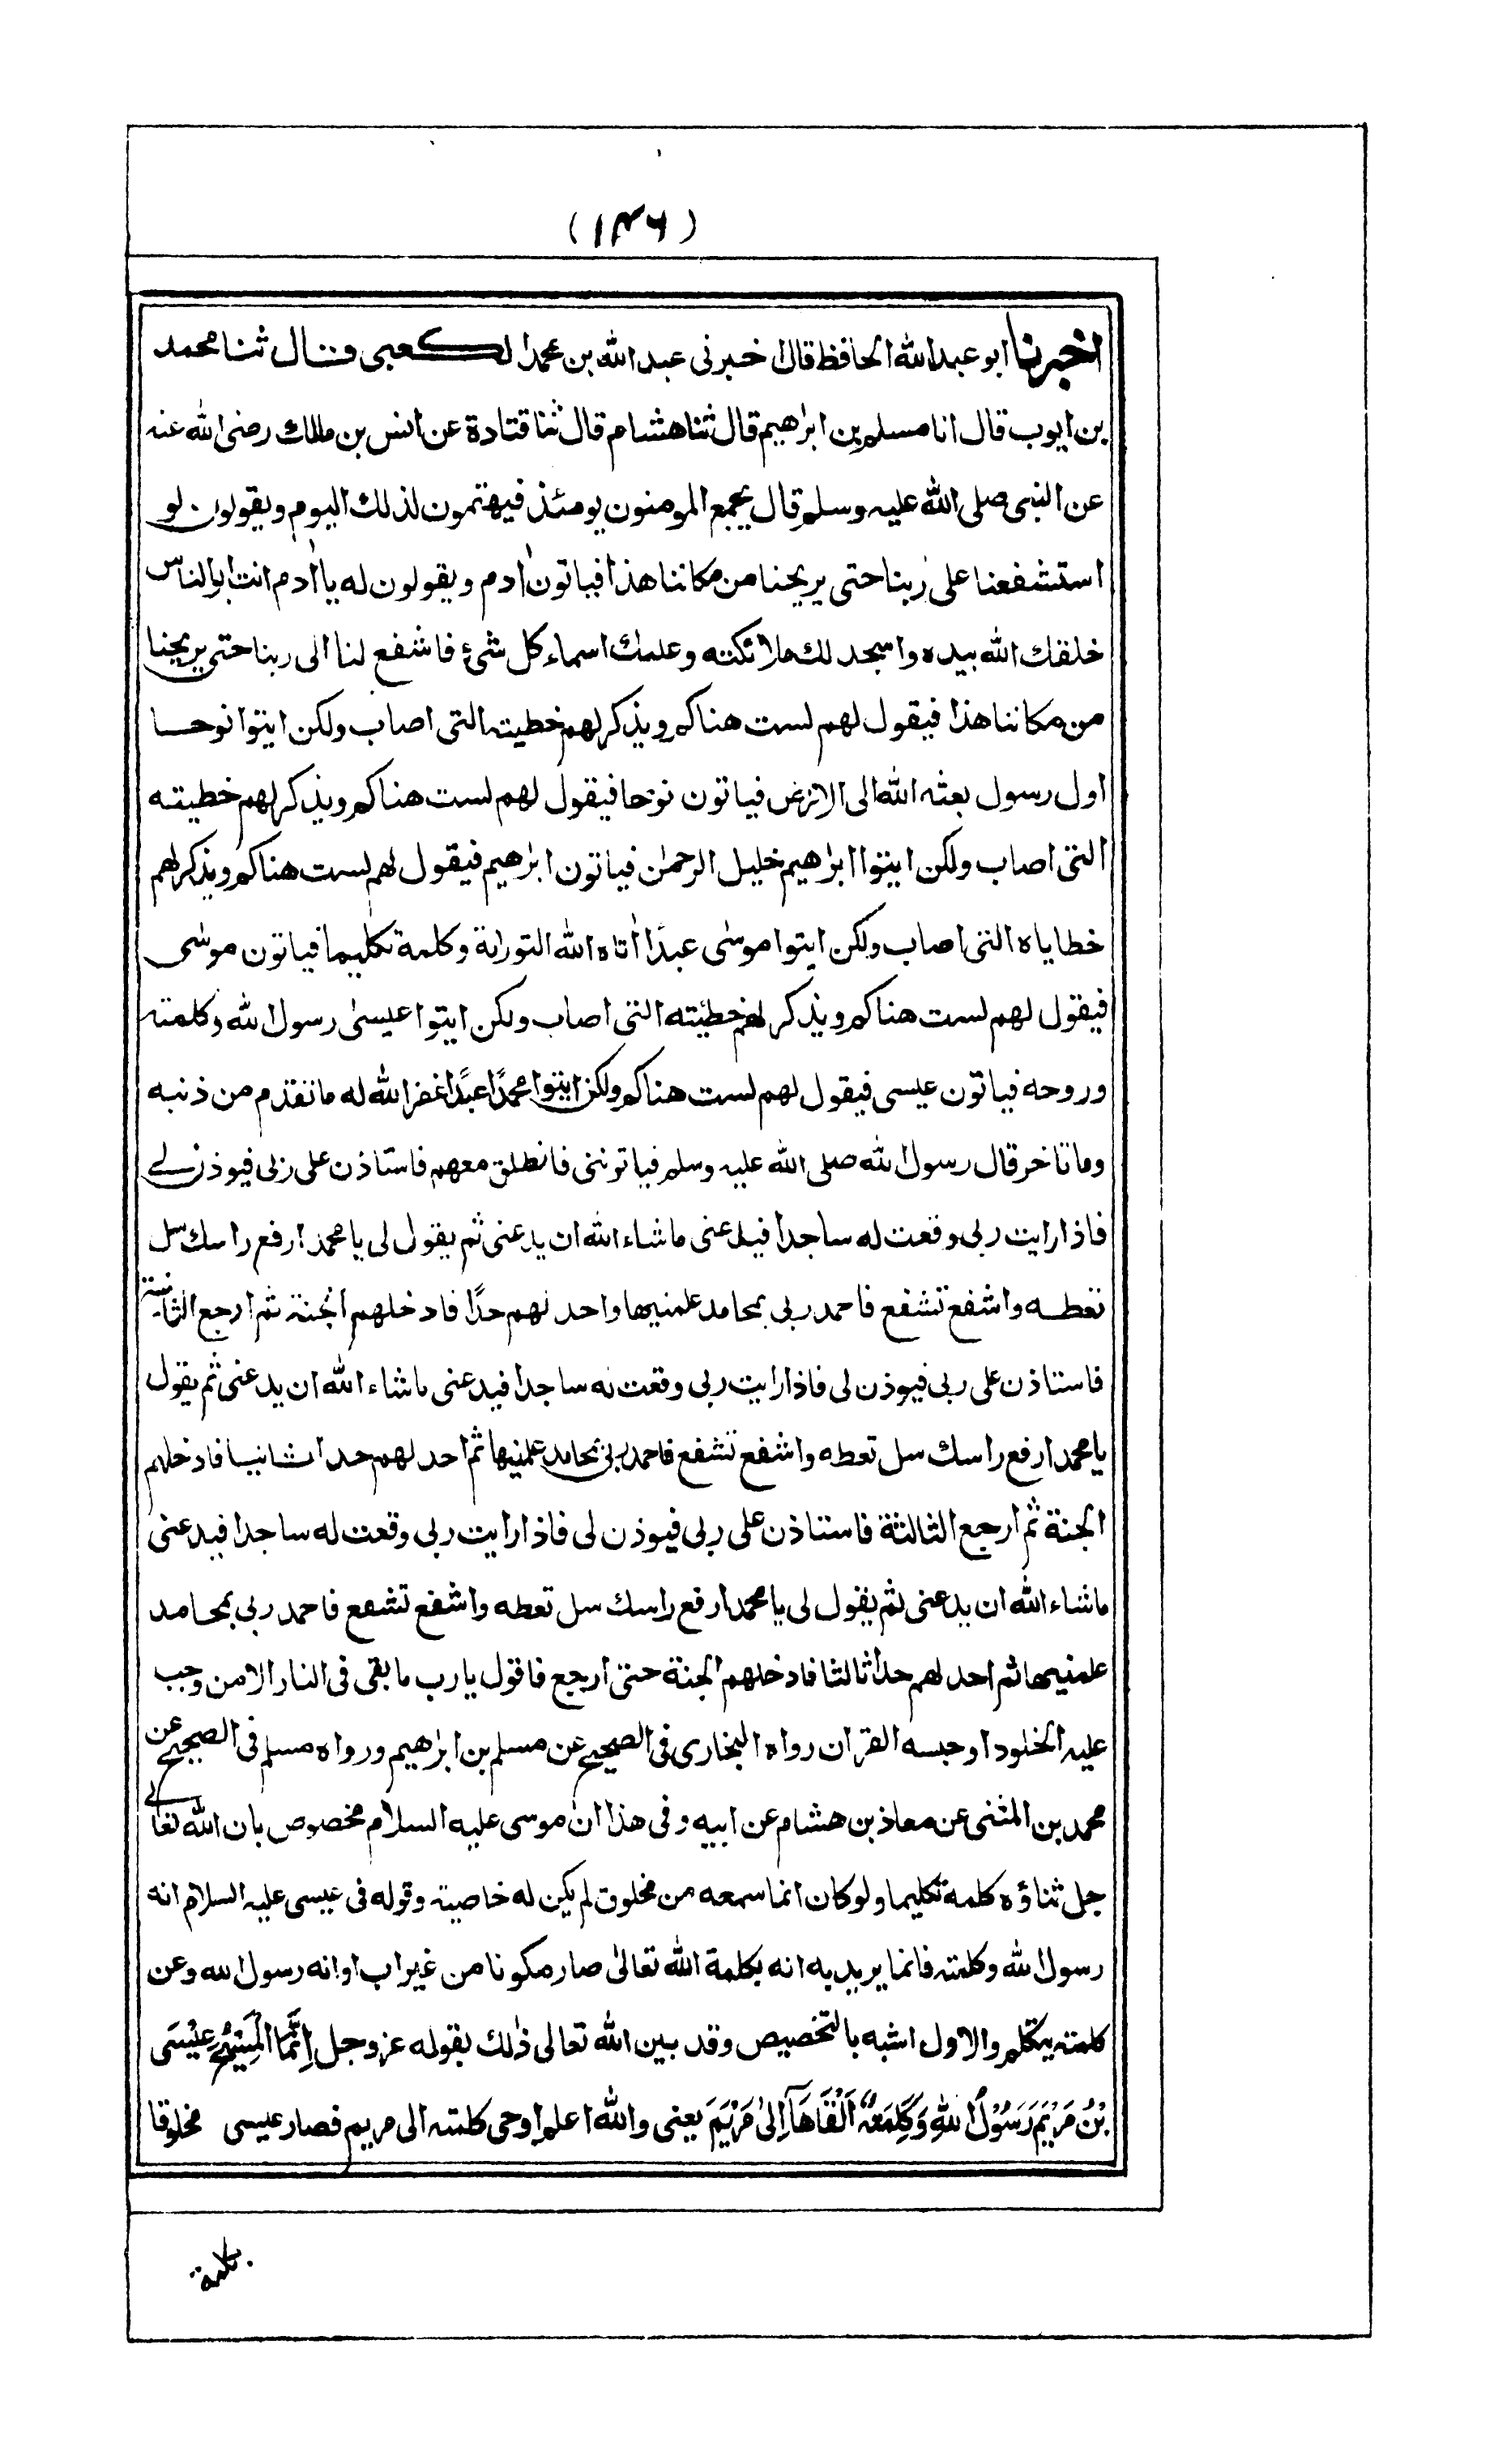 (۱۴۶)
اخبرنا ابو عبد الله الحافظ قال اخبرنى عبد الله بن محمد الكعبى قال ثنا محمد
بن ايوب قال انا مسلم بن ابرٰهيم قال ثنا هشام قال ثنا قتادة عن انس بن مالك رضى الله عنه
عن النبى صلى الله عليه وسلم قال يجمع المومنون يومئذ فيهتمون لذلك اليوم ويقولون لو
استشفعنا على ربنا حتى يريحنا من مكاننا هذا فياتون اٰدم ويقولون له يا اٰدم انت ابو الناس
خلقك الله بيده واسجد لك ملائكته وعلمك اسماء كل شئ فاشفع لنا الى ربنا حتى يريحنا
من مكاننا هذا فيقول لهم لست هناكم ويذكر لهم خطيته التى اصاب ولكن ايتوا نوحا
اول رسول بعثه الله الى الارض فياتون نوحا فيقول لهم لست هناكم ويذكر لهم خطيته
التى اصاب ولكن ايتوا ابرٰهيم خليل الرحمٰن فياتون ابرٰهيم فيقول لهم لست هناكم ويذكر لهم
خطاياه التى اصاب ولكن ايتوا موسٰى عبدًا اٰتاه الله التوراة وكلمة تكليما فياتون موسٰى
فيقول لهم لست هناكم ويذكر لهم خطئيته التى اصاب ولكن ايتوا عيسىٰ رسول الله وكلمته
وروحه فياتون عيسى فيقول لهم لست هناكم ولكن ايتوا محمدًا عبدًا غفر الله له ما تقدم من ذنبه
وما تاخر قال رسول الله صلى الله عليه وسلم فياتوننى فانطلق معهم فاستاذن على ربى فيوذن لے
فاذا رايت ربى وقعت له ساجدا فيدعنى ما شاء الله ان يدعنى ثم يقول لى يا محمد ارفع راسك سل
تعطه واشفع تشفع فاحمد ربى بمحامد علمنيها واحد لهم حدًا فادخلهم الجنة ثم ارجع الثانية
فاستاذن على ربى فيوذن لى فاذا رايت ربى وقعت له ساجدا فيدعنى ما شاء الله ان يدعنى ثم يقول
يا محمد ارفع راسك سل تعطه واشفع تشفع فاحمد ربى بمحامد علمنيها ثم احد لهم حدا ثانيا فادخلهم
الجنة ثم ارجع الثالثة فاستاذن على ربى فيوذن لى فاذا رايت ربى وقعت له ساجدا فيدعنى
ما شاء الله ان يدعنى ثم يقول لى يا محمد ارفع راسك سل تعطه واشفع تشفع فاحمد ربى بمحامد
علمنيها ثم احد لهم حدا ثالثا فادخلهم الجنة حتى ارجع فاقول يا رب ما بقى فى النار الا من وجب
عليه الخلود او حبسه القراٰن رواه البخارى فى الصحيح عن مسلم بن ابرٰهيم ورواه مسلم فى الصحيح عن
محمد بن المثنى عن معاذ بن هشام عن ابيه وفى هذا ان موسى عليه السلام مخصوص بان الله تعالے
جل ثناؤه كلمة تكليما ولو كان انما سمعه من مخلوق لم يكن له خاصية وقوله فى عيسى عليه السلام انه
رسول الله وكلمته فانما يريد به انه بكلمة الله تعالىٰ صار مكونا من غير اب او انه رسول الله وعن
كلمته يتكلم والاول اشبه بالتخصيص وقد بين الله تعالى ذٰلك بقوله عز وجل اِنَّمَا الْمَسِيْحُ عِيْسَى
بْنُ مَرْيَمَ رَسُوْلُ اللّٰهِ وَكَلِمَتُهٗ اَلْقَاهَآ اِلىٰ مَرْيَمَ يعنى والله اعلم اوحى كلمته الى مريم فصار عيسى مخلوقا
بكلمة